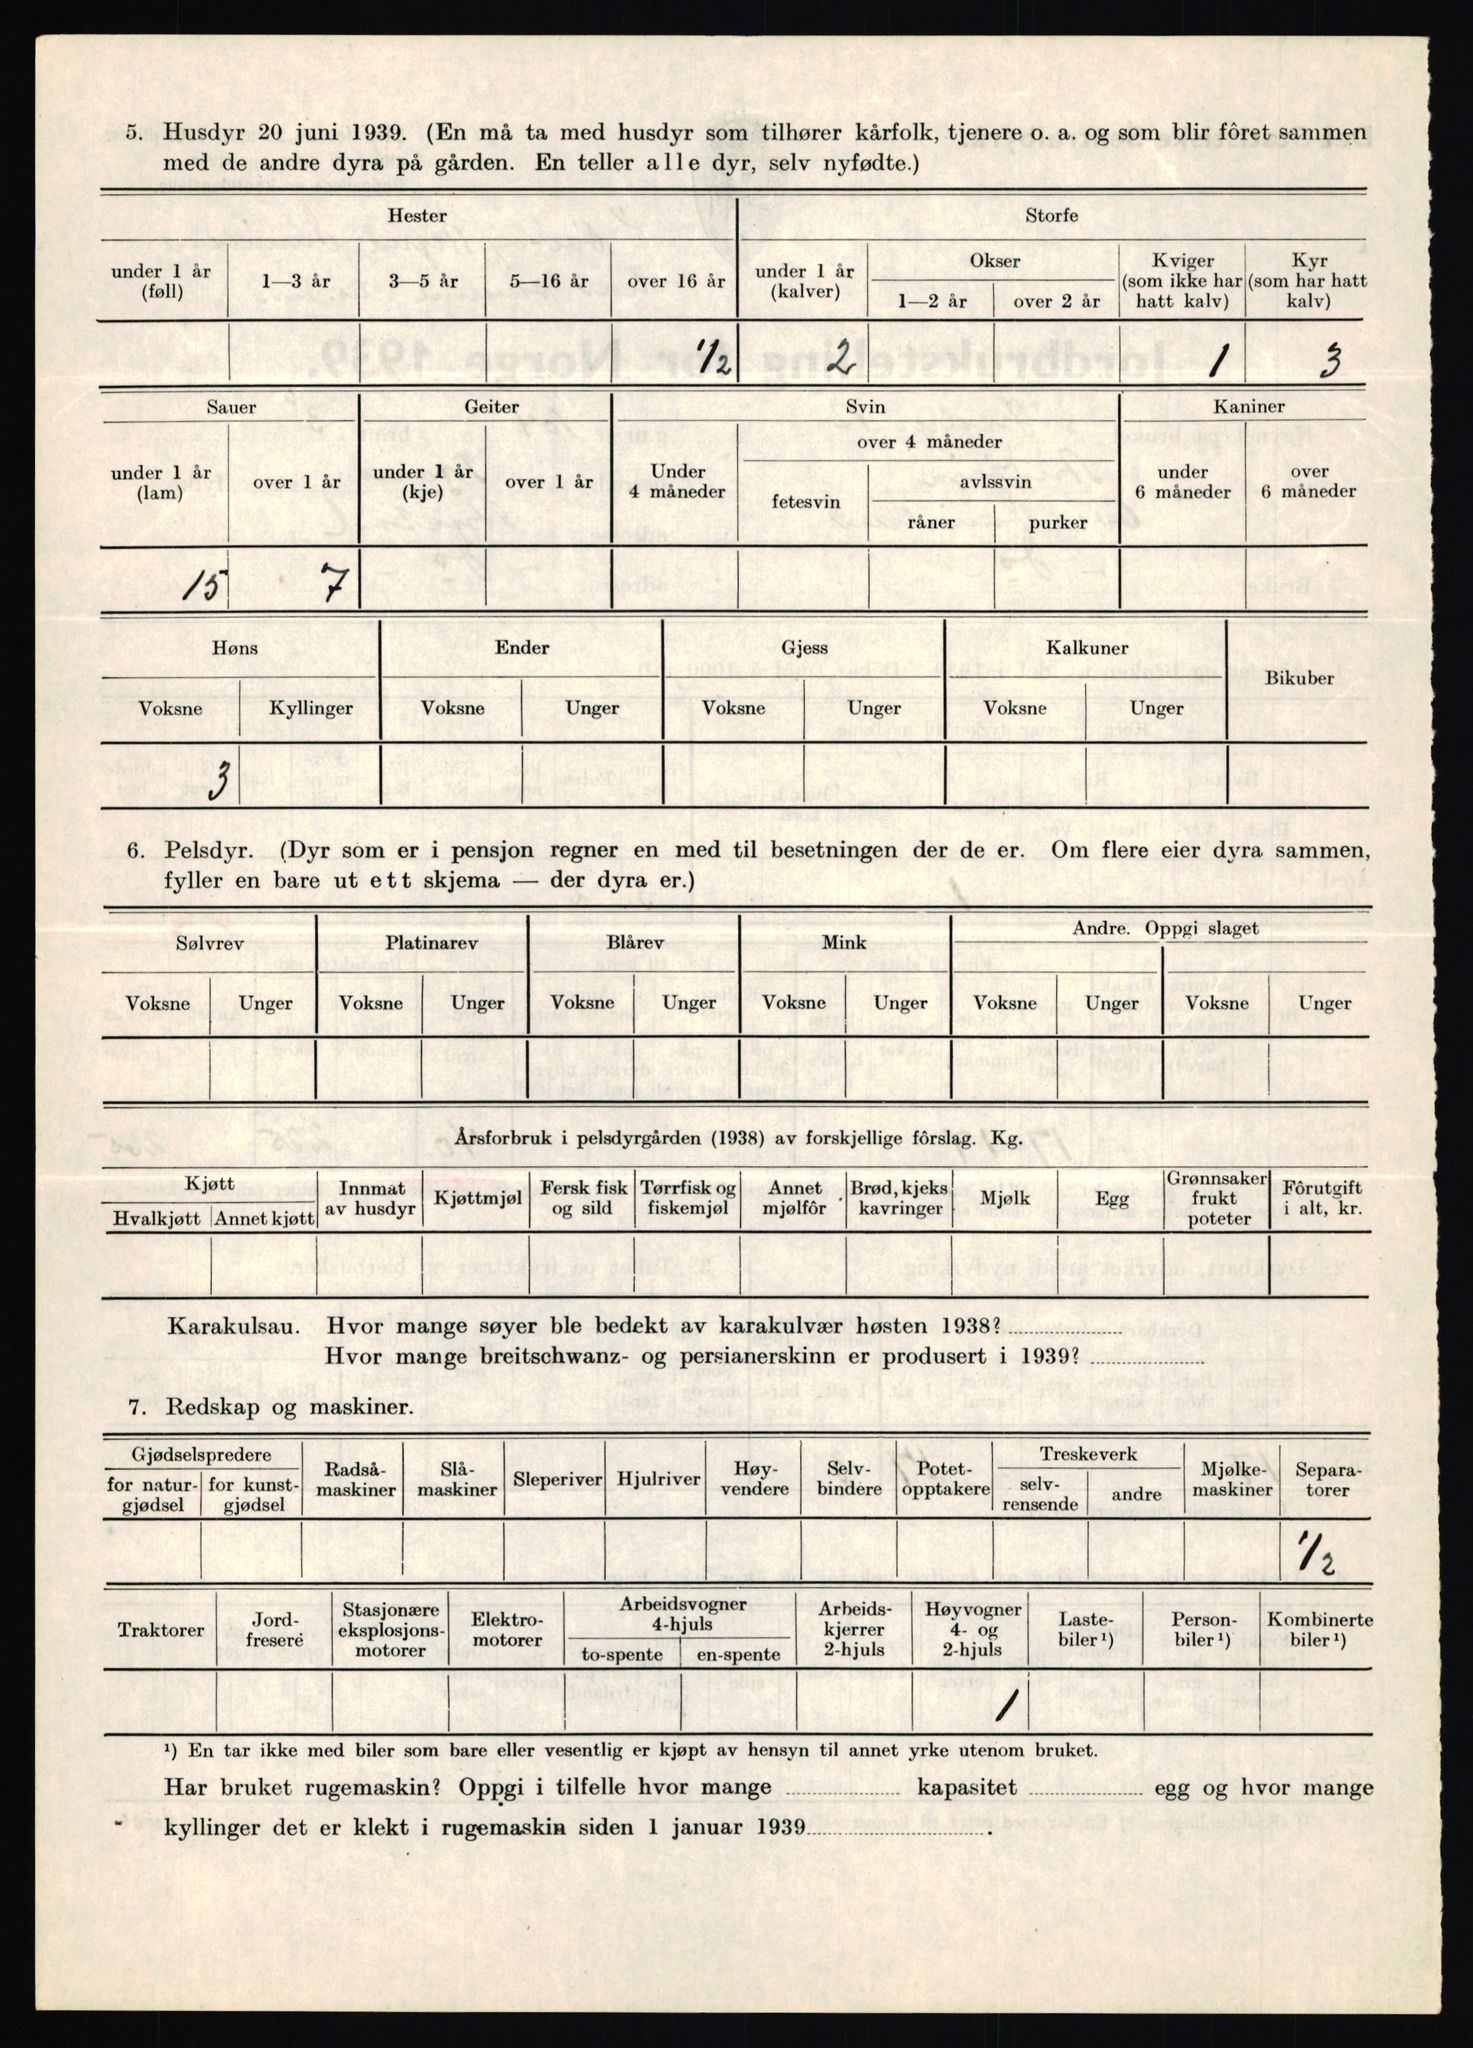 5. Husdyr 20 juni 1939. (En må ta med husdyr som tilhører kårfolk, tjenere o. a. og som blir fôret sammen
med de andre dyra på gården. En teller alle dyr, selv nyfødte.)
Hester Storfe
under 1 år (føll) 1—3 år 3—5 år 5—16 år over 16 år under 1 år (kalver) Okser 1—2 år over 2 år Kviger (som ikke har hatt kalv) Kyr (som har hatt kalv)
1/2 2 1 3
Sauer Geiter Svin Kaniner
under 1 år (lam) over 1 år under 1 år (kje) over 1 år Under 4 måneder over 4 måneder fetesvin avlssvin råner purker under 6 måneder over 6 måneder
15 7
Høns Ender Gjess Kalkuner Bikuber
Voksne Kyllinger Voksne Unger Voksne Unger Voksne Unger
3
6. Pelsdyr. (Dyr som er i pensjon regner en med til besetningen der de er. Om flere eier dyra sammen,
fyller en bare ut ett skjema — der dyra er.)
Sølvrev Platinarev Blårev Mink Andre. Oppgi slaget
Voksne Unger Voksne Unger Voksne Unger Voksne Unger Voksne Unger Voksne Unger
Årsforbruk i pelsdyrgården (1938) av forskjellige fôrslag. Kg.
Kjøtt Hvalkjøtt Annet kjøtt Innmat av husdyr Kjøttmjøl Fersk fisk og sild Tørrfisk og fiskemjøl Annet mjølfôr Brød, kjeks kavringer Mjølk Egg Grønnsaker frukt poteter Fôrutgift i alt, kr.
Karakulsau. Hvor mange søyer ble bedekt av karakulvær høsten 1938?
Hvor mange breitschwanz- og persianerskinn er produsert i 1939?
7. Redskap og maskiner.
Gjødselspredere for natur-gjødsel for kunst-gjødsel Radså-maskiner Slå-maskiner Sleperiver Hjulriver Høy-vendere Selv-bindere Potet-opptakere Treskeverk selv-rensende andre Mjølke-maskiner Separa-torer
1/2
Traktorer Jord-fresere Stasjonære eksplosjons-motorer Elektro-motorer Arbeidsvogner 4-hjuls to-spente en-spente Arbeids-kjerrer 2-hjuls Høyvogner 4- og 2-hjuls Laste-biler¹) Person-biler¹) Kombinerte biler¹)
1
¹) En tar ikke med biler som bare eller vesentlig er kjøpt av hensyn til annet yrke utenom bruket.
Har bruket rugemaskin? Oppgi i tilfelle hvor mange kapasitet egg og hvor mange
kyllinger det er klekt i rugemaskin siden 1 januar 1939 .